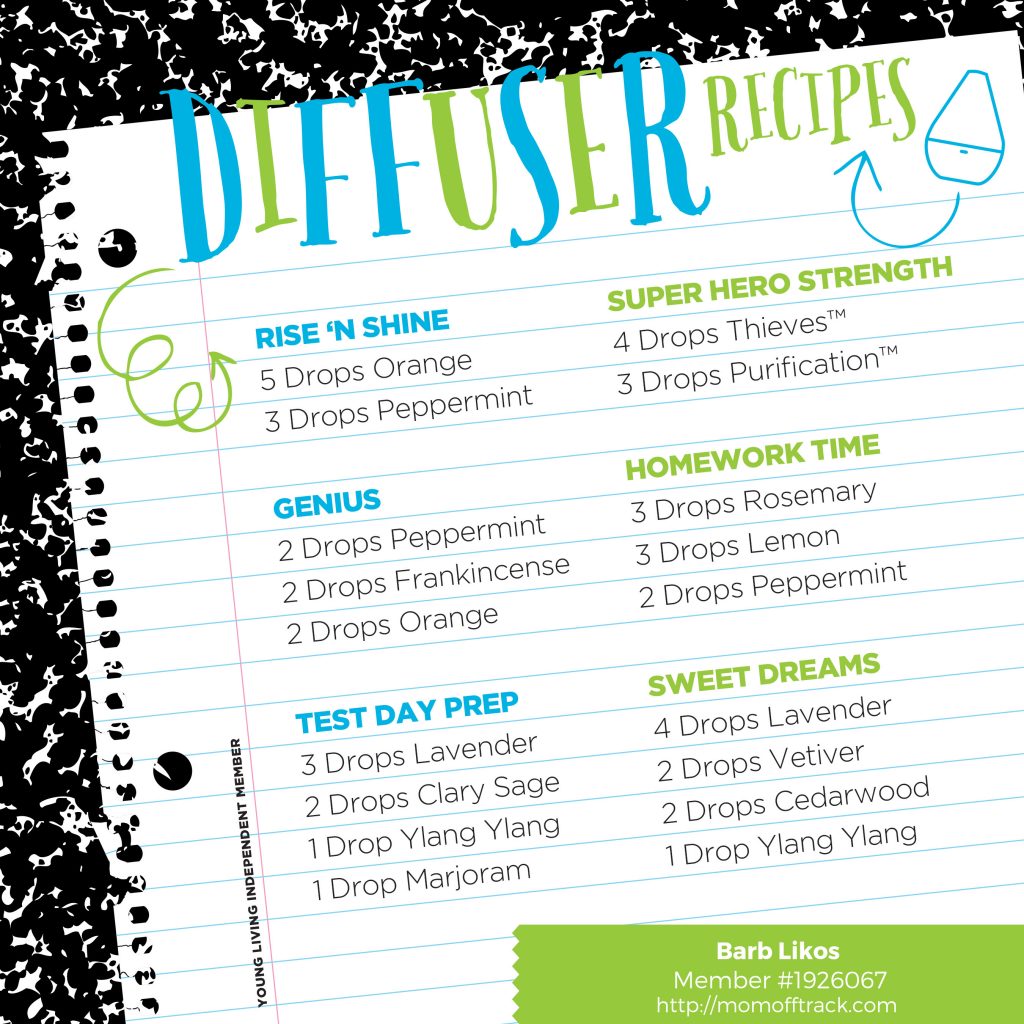 DIFFUSER RECIPES
RISE ‘N SHINE
5 Drops Orange
3 Drops Peppermint
SUPER HERO STRENGTH
4 Drops Thieves™
3 Drops Purification™
GENIUS
2 Drops Peppermint
2 Drops Frankincense
2 Drops Orange
HOMEWORK TIME
3 Drops Rosemary
3 Drops Lemon
2 Drops Peppermint
TEST DAY PREP
3 Drops Lavender
2 Drops Clary Sage
1 Drop Ylang Ylang
1 Drop Marjoram
SWEET DREAMS
4 Drops Lavender
2 Drops Vetiver
2 Drops Cedarwood
1 Drop Ylang Ylang
YOUNG LIVING INDEPENDENT MEMBER
Barb Likos
Member #1926067
http://momofftrack.com